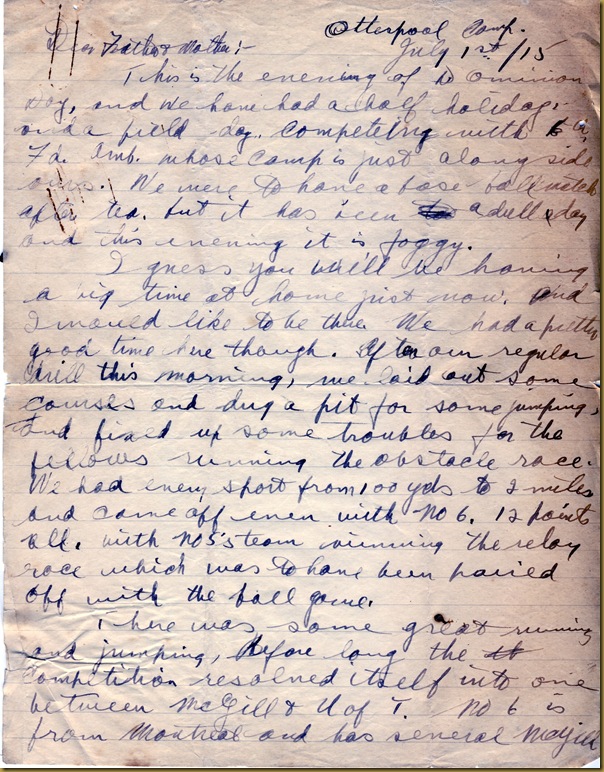 Otterpool Camp.
July 1st/15
Dear Father & Mother;-
This is the evening of Dominion
Day, and we have had a half holiday,
and a field day. competeing with 6 th,
Fd. Amb. whose camp is just along side
ours. We were to have a base ball match
after tea. but it has been a dull day
and this evening it is foggy.
I guess you will be having
a big time at home just now. and
I would like to be there. We had a pretty
good time here though. After our regular
drill this morning, we laid out some
courses and dug a pit for some jumping,
and fixed up some troubles for the
fellows running the obstacle race.
We had every sport from 100 yds to 2 miles
and came off even with No 6. 12 points
all. with No 5's team winning the relay
race which was to have been paired
off with the ball game.
There was some great running
and jumping, Before long the
competition resolved itself into one
between McGill & U of T. No 6 is
from Montreal and has several McGill